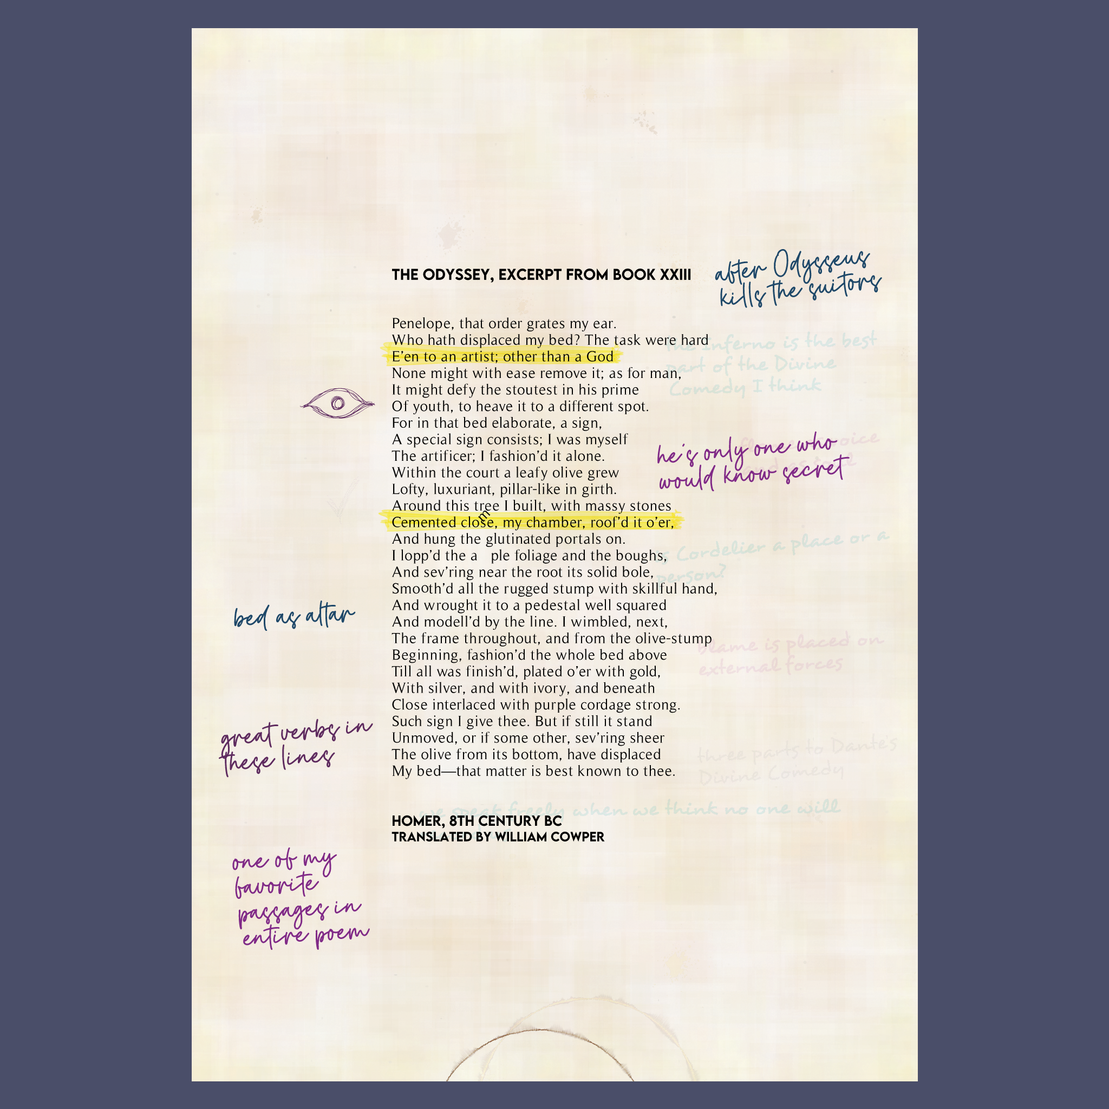 THE ODYSSEY, EXCERPT FROM BOOK XXIII
after Odysseus
kills the suitors
Penelope, that order grates my ear.
Who hath displaced my bed? The task were hard
E'en to an artist; other than a God
None might with ease remove it; as for man,
It might defy the stoutest in his prime
Of youth, to heave it to a different spot.
For in that bed elaborate, a sign,
A special sign consists; I was myself
The artificer; I fashion'd it alone.
Within the court a leafy olive grew
Lofty, luxuriant, pillar-like in girth.
Around this tree I built, with massy stones
m
Cemented close, my chamber, roof'd it o'er,
And hung the glutinated portals on.
I lopp'd the a ple foliage and the boughs,
And sev'ring near the root its solid bole,
Smooth'd all the rugged stump with skillful hand,
And wrought it to a pedestal well squared
And modell'd by the line. I wimbled, next,
The frame throughout, and from the olive-stump
Beginning, fashion'd the whole bed above
Till all was finish'd, plated o'er with gold,
With silver, and with ivory, and beneath
Close interlaced with purple cordage strong.
Such sign I give thee. But if still it stand
Unmoved, or if some other, sev'ring sheer
The olive from its bottom, have displaced
My bed—that matter is best known to thee.
HOMER, 8TH CENTURY BC
TRANSLATED BY WILLIAM COWPER
Inferno is the best
part of the Divine
Comedy I think
he's only one who
would know secret
voice
Cordelier a place or a
person?
blame is placed on
external forces
three parts to Dante's
Divine Comedy
speak freely when we think no one will
bed as altar
great verbs in
these lines
one of my
favorite
passages in
entire poem